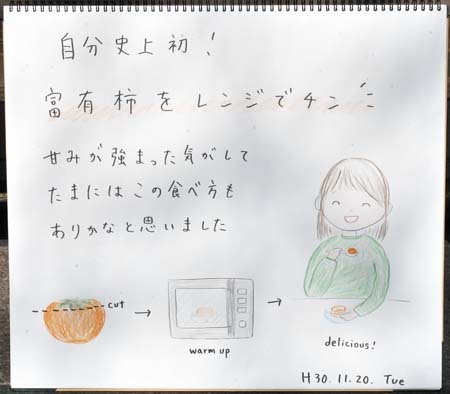 自分史上初!
富有柿をレンジでチン
甘みが強まった気がして
たまにはこの食べ方も
ありかなと思いました
cut
warm up
delicious!
H30.11.20. Tue